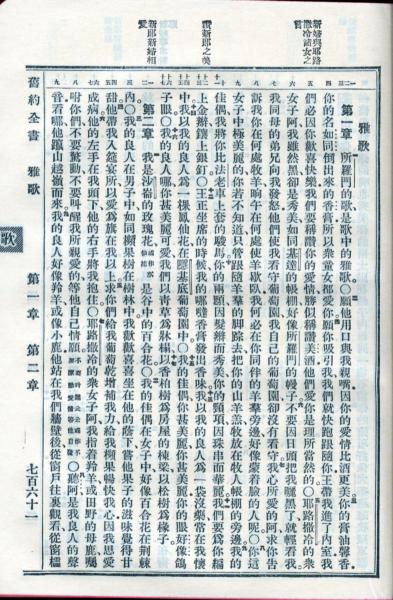 雅歌
第一章 所羅門的歌是歌中的雅歌○願他用口與我親嘴因你的愛情比酒更美你的膏油馨香
你的名如同倒出來的香膏所以衆童女都愛你願你吸引我我們就快跑跟隨你王帶我進了內室我
們必因你歡喜快樂我們要稱讚你的愛情勝似稱讚美酒他們愛你是理所當然的○耶路撒冷的衆
女子阿我雖然黑卻是秀美如同基達的帳棚好像所羅門的幔子不要因日頭把我曬黑了就輕看我
我同母的弟兄向我發怒他們使我看守葡萄園我自己的葡萄園卻沒有看守我心所愛的阿求你告
訴我你在何處牧羊晌午在何處使羊歇臥我何必在你同伴的羊羣旁邊好像蒙着臉的人呢○你這
女子中極美麗的你若不知道只管跟隨羊羣的脚踪去把你的山羊羔牧放在牧人帳棚的旁邊我的
佳偶我將你比法老車上套的駿馬你的兩顋因髮辮而秀美你的頸項因珠串而華麗我們要爲你編
上金辮鑲上銀釘○王正坐席的時候我的哪噠香膏發出香味我以我的良人爲一袋沒藥常在我懷
中我以我的良人爲一棵鳳仙花在隱基底葡萄園中○我的佳偶你甚美麗你甚美麗你的眼好像鴿
子眼○我的良人哪你甚美麗可愛我們以青草爲牀榻以香柏樹爲房屋的棟梁以松樹爲椽子
第二章 我是沙崙的玫瑰花或作水仙花是谷中的百合花○我的佳偶在女子中好像百合花在荊棘
內○我的良人在男子中如同蘋果樹在樹林中我歡歡喜喜坐在他的蔭下嘗他果子的滋味覺得甘
甜他帶我入筵宴所以愛爲旗在我以上求你們給我葡萄乾增補我力給我蘋果暢快我心因我思愛
成病他的左手在我頭下他的右手將我抱住○耶路撒冷的衆女子阿我指着羚羊或田野的母鹿囑
咐你們不要驚動不要叫醒我所親愛的等他自己情願○聽阿是我良人的聲
音看哪他躥山越嶺而來我的良人好像羚羊或像小鹿他站在我們牆壁後從窗戶往裏觀看從窗櫺
新婦與耶路
撒冷諸女之
讚新郎之美
新郎新婦相
愛
舊約全書 雅歌 第一章 第二章 七百六十一
歌